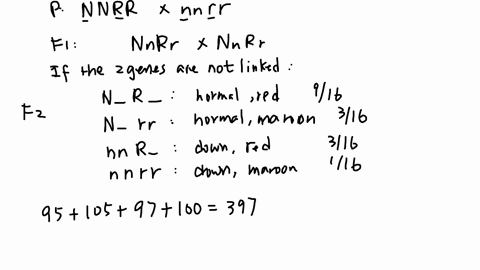 P. NNRR x nnrr
F1: NnRr x NnRr
If the 2 genes are not linked:
F2
N_ R_ : normal, red 9/16
N_ rr : normal, maroon 3/16
nn R_ : down, red 3/16
nnrr : down, maroon 1/16
95 + 105 + 97 + 100 = 397